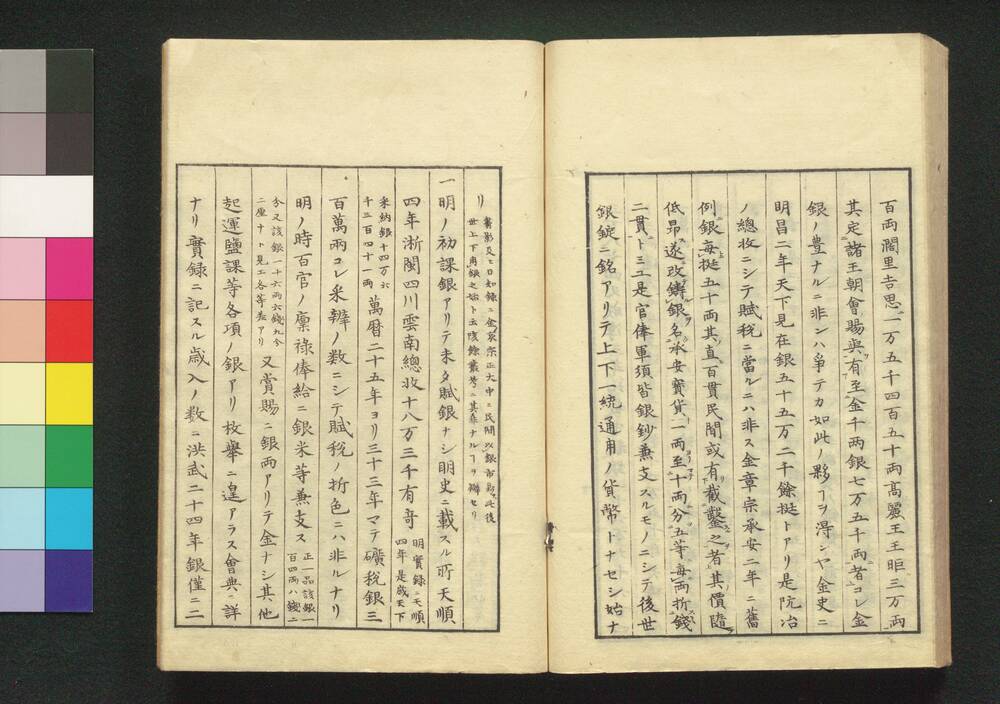 百両闊里吉思一万五千四百五十両高麗王王昛三万両
其定諸王朝會賜與有至金千両銀七万五千両者コレ金
銀ノ豊ナルニ非ンハ爭テカ如此ノ夥ヿヲ得ンヤ金史ニ
明昌二年天下見在銀五十五万二千餘挺トアリ是阬冶
ノ總收ニシテ賦税ニ當ルニハ非ス金章宗承安二年ニ舊
例銀每挺五十両其直百貫民間或有截鑿之者其價隨
低昂遂改鑄銀名承安寶貨一両至十両分五等每両折錢
二貫トミエ是官俸軍須皆銀鈔兼支スルモノニシテ後世
銀錠ニ銘アリテ上下一統通用ノ貨幣トナセシ始ナ
リ
世上下用銀之始ト云陔餘叢考ニ其非ナルヿヲ辯セリ
一明ノ初課銀アリテ未タ賦銀ナシ明史ニ載スル所天順
四年浙閩四川雲南總收十八万三千有奇
明實録ニ天順
四年是歳天下
采納銀十四万六
千三百四十一両
萬曆二十五年ヨリ三十三年マテ礦税銀三
百萬兩コレ采辨ノ数ニシテ賦税ノ折色ニハ非ルナリ
明ノ時百官ノ廩祿俸給ニ銀米等兼支ス
正一品該銀一
百四両ハ錢二
分又該銀一十六両六錢九分
二厘ナト見エ各等差アリ
又賞賜ニ銀両アリテ金ナシ其他
起運鹽課等各項ノ銀アリ枚舉ニ遑アラス會典ニ詳
ナリ實録ニ記スル歳入ノ数ニ洪武二十四年銀僅ニ二